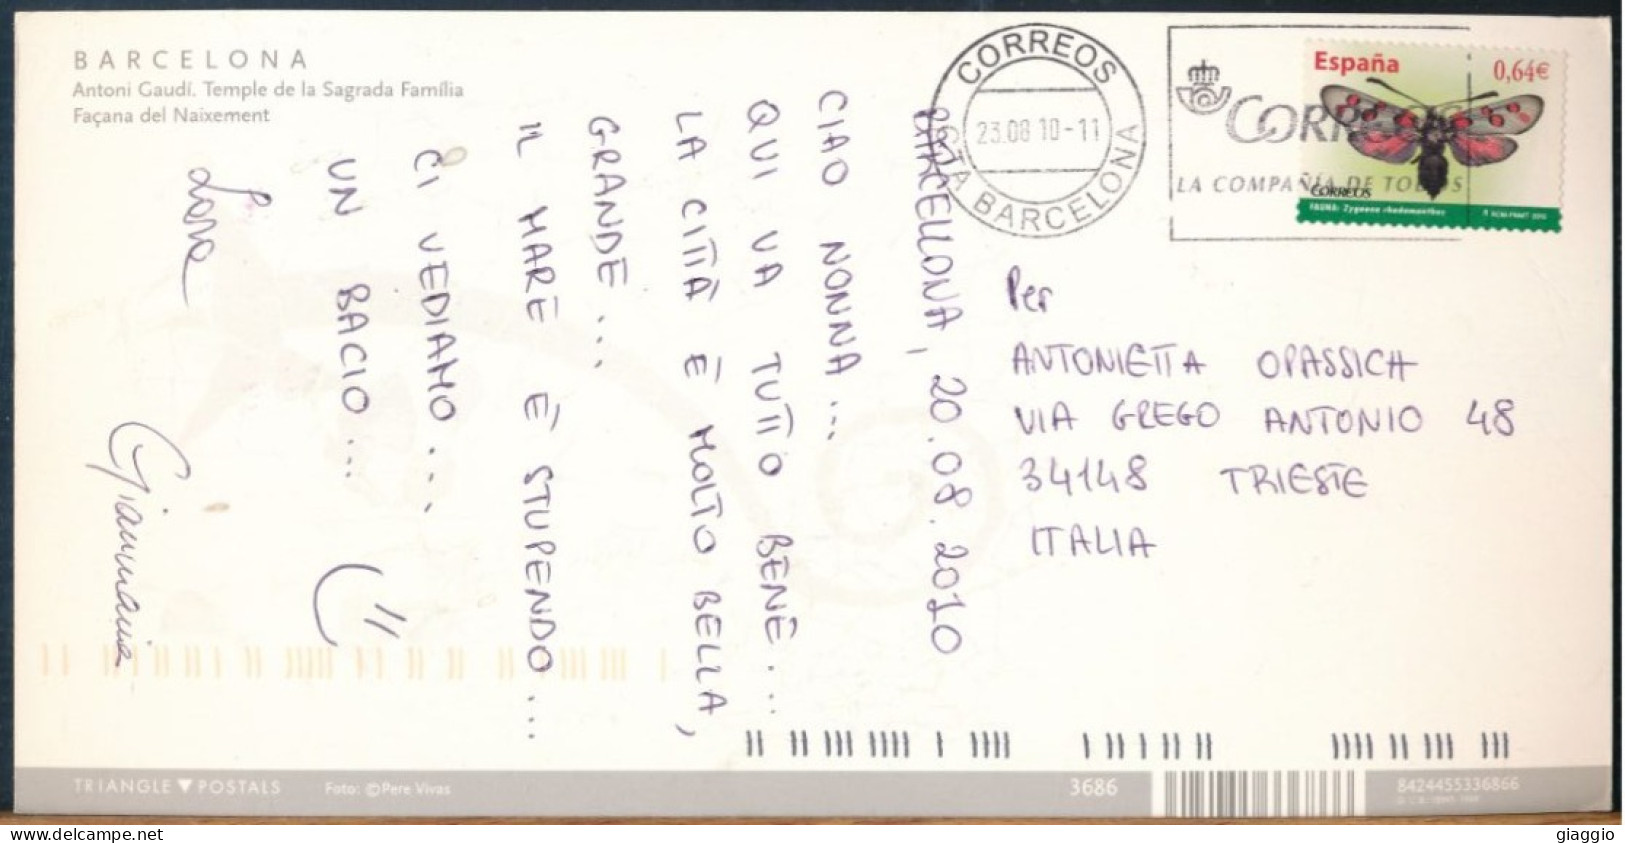 BARCELONA
Antoni Gaudí. Temple de la Sagrada Família
Façana del Naixement
CORREOS
23.08 10-11
CTA BARCELONA
CORREOS
LA COMPAÑIA DE TODOS
España
0,64€
CORREOS
FAUNA: Zygaena rhadamanthus
BARCELLONA, 20.08.2010
CIAO NONNA...
QUI VA TUTTO BENE...
LA CITTÀ È MOLTO BELLA,
GRANDE...
IL MARE È STUPENDO...
CI VEDIAMO...
UN BACIO...
Gianmaria
Per
ANTONIETTA OPASSICH
VIA GREGO ANTONIO 48
34148 TRIESTE
ITALIA
TRIANGLE ▼ POSTALS
Foto: © Pere Vivas
3686
8424455336866
giaggio